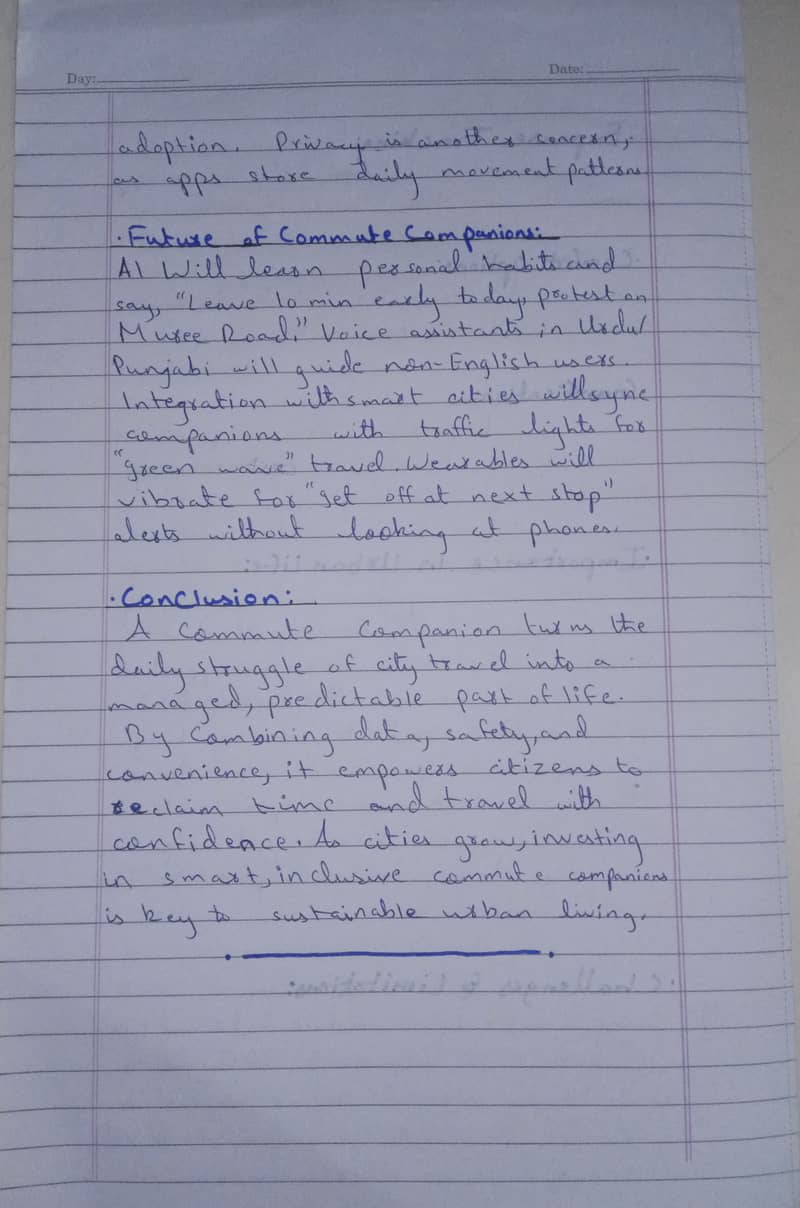 Day:
Date:
adoption. Privacy is another concern,
as apps store daily movement patterns
· Future of Commute Companions:
AI Will learn personal habits and
say, "Leave 10 min early today, protest on
Muree Road." Voice assistants in Urdu/
Punjabi will guide non-English users.
Integration with smart cities will sync
companions with traffic lights for
"green wave" travel. Wearables will
vibrate for "get off at next stop"
alerts without looking at phones.
· Importance in Urban life:
· Conclusion:
A Commute Companion turns the
daily struggle of city travel into a
managed, predictable part of life.
By Combining data, safety, and
convenience, it empowers citizens to
reclaim time and travel with
confidence. As cities grow, investing
in smart, inclusive commute companions
is key to sustainable urban living.
· Challenges & Limitations: